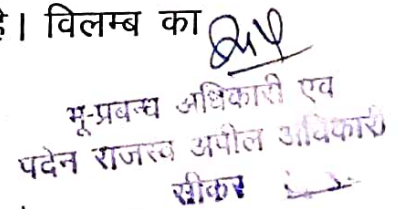 है। विलम्ब का
भू-प्रबन्ध अधिकारी एव
पदेन राजस्व अपील अधिकारी
सीकर